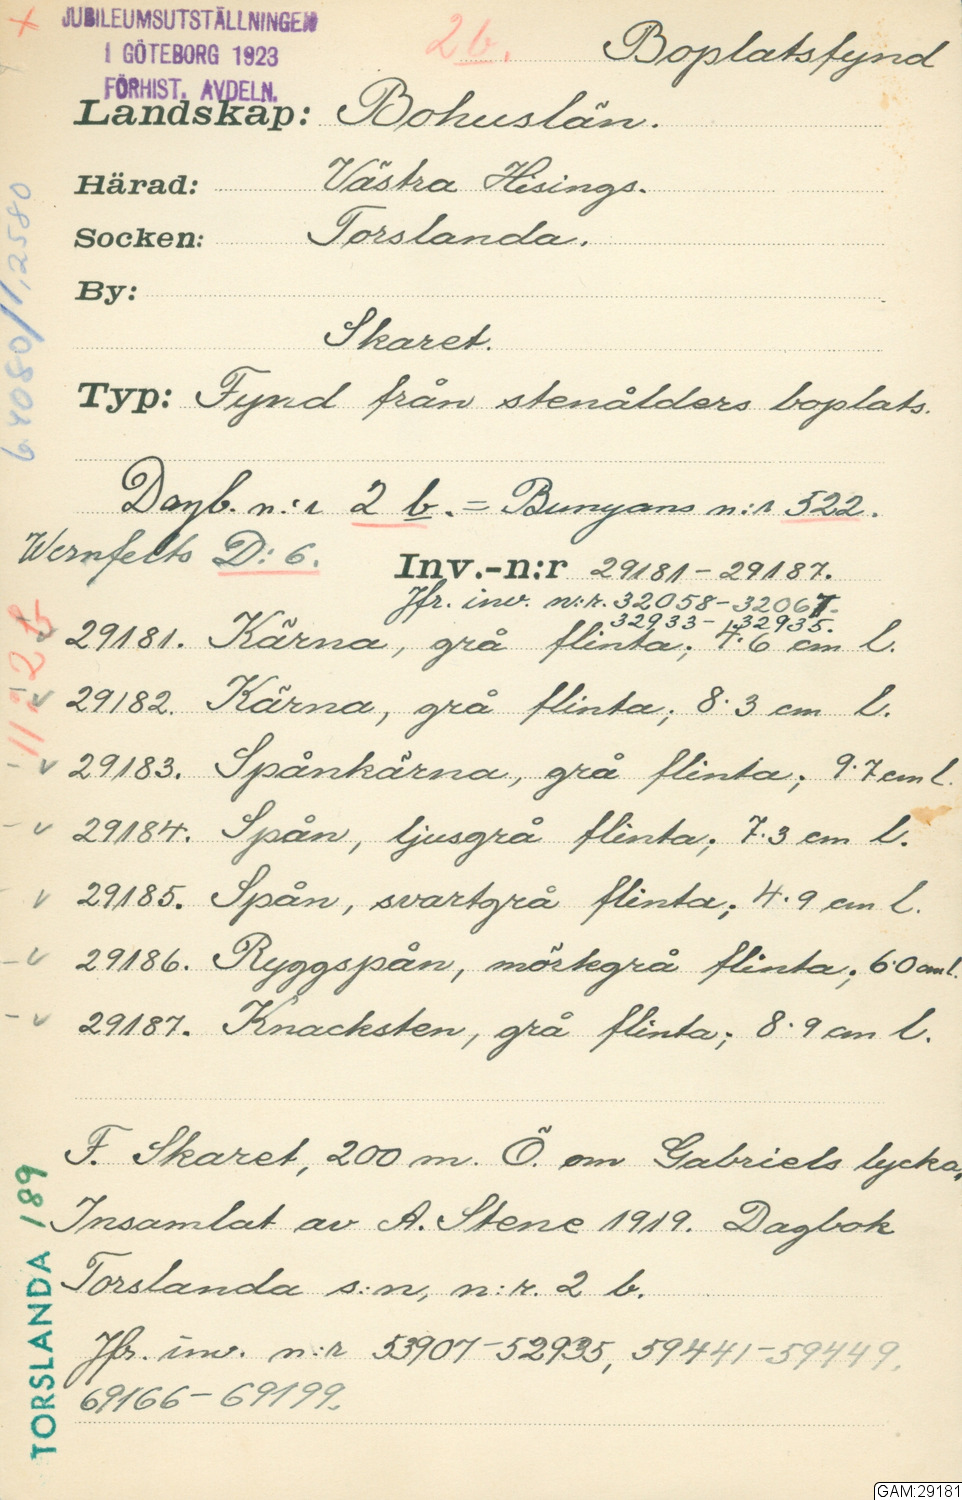 JUBILEUMSUTSTÄLLNINGEN
I GÖTEBORG 1923
FÖRHIST. AVDELN.
2b.
Boplatsfynd
Landskap: Bohuslän.
Härad: Västra Hisings.
Socken: Torslanda.
By:
Skaret.
Typ: Fynd från stenålders boplats.
Dagb. n:r 2 b. = Bunyans n:r 522.
Wernfelts D: 6.
Inv.-n:r 29181-29187.
Jfr. inv. n:r. 32058-32067.
32933-32935.
29181. Kärna, grå flinta; 4.6 cm l.
29182. Kärna, grå flinta; 8.3 cm l.
29183. Spånkärna, grå flinta; 9.7 cm l.
29184. Spån, ljusgrå flinta; 7.3 cm l.
29185. Spån, svartgrå flinta; 4.9 cm l.
29186. Ryggspån, mörkgrå flinta; 6.0 cm l.
29187. Knacksten, grå flinta; 8.9 cm l.
F. Skaret, 200 m. Ö. om Gabriels lycka.
Insamlat av A. Stene 1919. Dagbok
Torslanda s:n, n:r. 2 b.
Jfr. inv. n:r 53907-52935, 59441-59449,
69166-69199.
64080/11,2580
TORSLANDA 189
GAM:29181